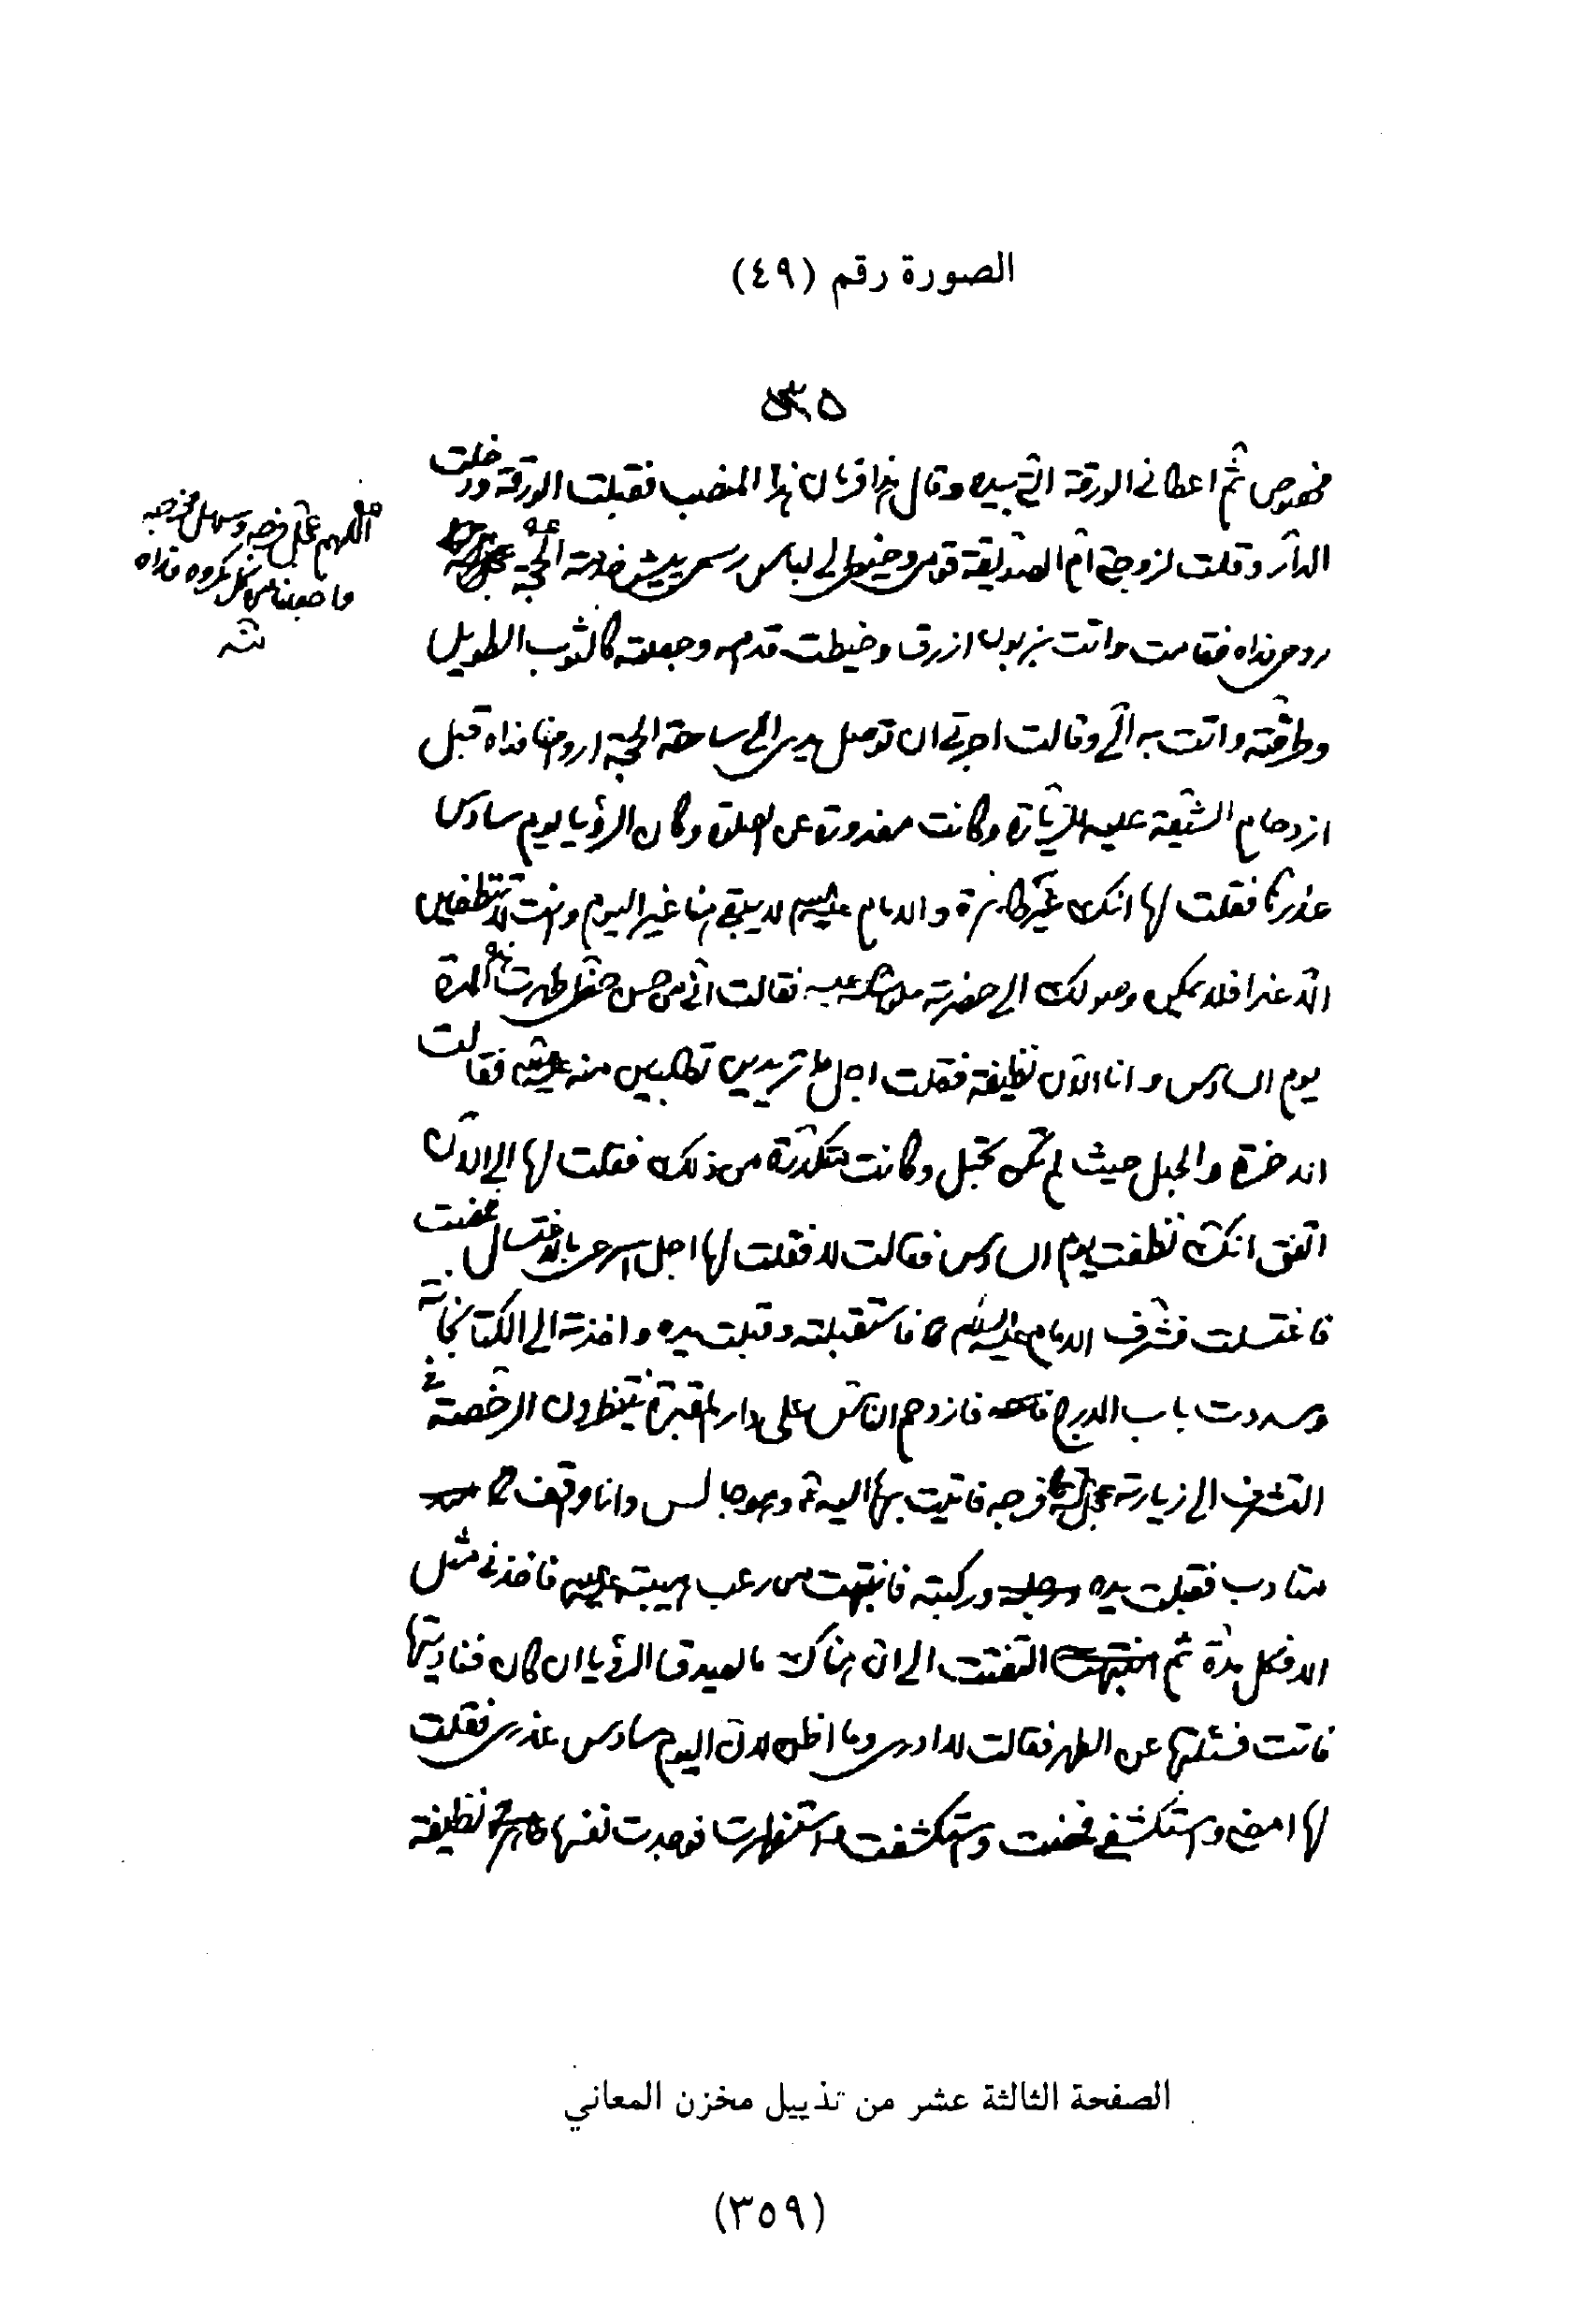 الصورة رقم (٤٩)
مخصوص ثم اعطاني الورقة التي بيده وقال هذا فرمان هذا المنصب فقبلت الورقة ودخلت
الدار وقلت لزوجتي ام الصديقة قومي وخيطي لي لباس رسمي خدمة الحجة عجل
روحي فداه فقامت واتت ازرق وخيطت وجعلته كالثوب الطويل
وطرقته واتت به الي وقالت اجرتي ان توصل يدي الى ساحة الحجة ارواحنا فداه قبل
ازدحام الشيعة عليه للزيارة وكانت معذورة عن الصلوة وكان الرؤيا يوم سادس
عذرها فقلت لها انك غير طاهرة والامام عليه السلام لا يبقى هنا غير اليوم وانت لا تنظفين
الا غدا فلا يمكن وصولك الى حضرته فقالت اني من حسن حظي طهرت هذه المرة
يوم السادس وانا الآن نظيفة فقلت اجل ما تريدين تطلبين منه فقالت
الاخرة والحبل حيث لم تكن تحبل وكانت متكدرة من ذلك فقلت لها الى الآن
اتفق انك نظفت يوم السادس فقالت لا فقلت لها اجل اسرعي بالاغتسال فمضت
فاغتسلت فتشرف الامام عليه السلام فاستقبلته وقبلت يده واخذته الى الكتابخانة
وسددت باب الدرج فازدحم الناس على دار المقبرة ينتظرون الرخصة في
التشرف الى زيارته عجل الله فرجه فاتيت بها اليه وهو جالس وانا وقف
متادب فقبلت يده وركبته فانتبهت من رعب هيبته عليه فاخذني مثل
الافكل مدة ثم التفتت الى ان هناك ما يصدق الرؤيا ان كان فناديتها
فاتت فسئلتها عن الطهر فقالت لا ادري وما اظن لان اليوم سادس عذري فقلت
لها امضي واستكشفي فمضت واستكشفت واستظهرت فوجدت نفسها نظيفة
اللهم عجل فرجه وسهل مخرجه
واجعلنا من كل مكروه فداه
الصفحة الثالثة عشر من تذييل مخزن المعاني
(٣٥٩)